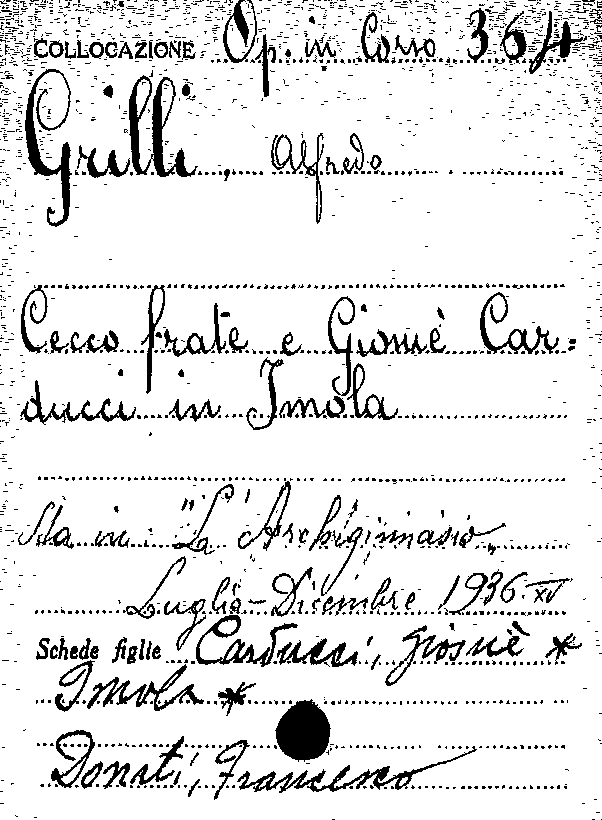 COLLOCAZIONE Op. in Corso 364
Grilli, Alfredo
Cecco frate e Giosuè Car=
ducci in Imola
Sta in: "L'Archiginnasio„
Luglio-Dicembre 1936-XV
Schede figlie Carducci, Giosuè *
Imola *
Donati, Francesco